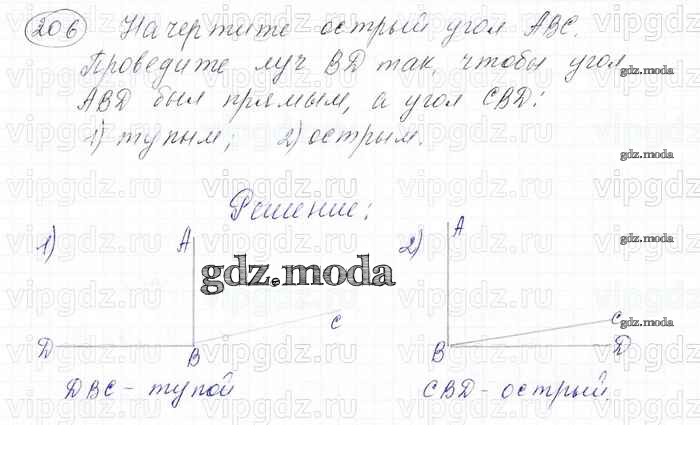 206 Начертите острый угол ABC.
Проведите луч BD так, чтобы угол
ABD был прямым, а угол CBD:
1) тупым; 2) острым.
gdz.moda
gdz.moda
Решение:
1) A 2) A
gdz.moda
gdz.moda
C C
gdz.moda
D B B D
DBC - тупой CBD - острый.
vipgdz.ru